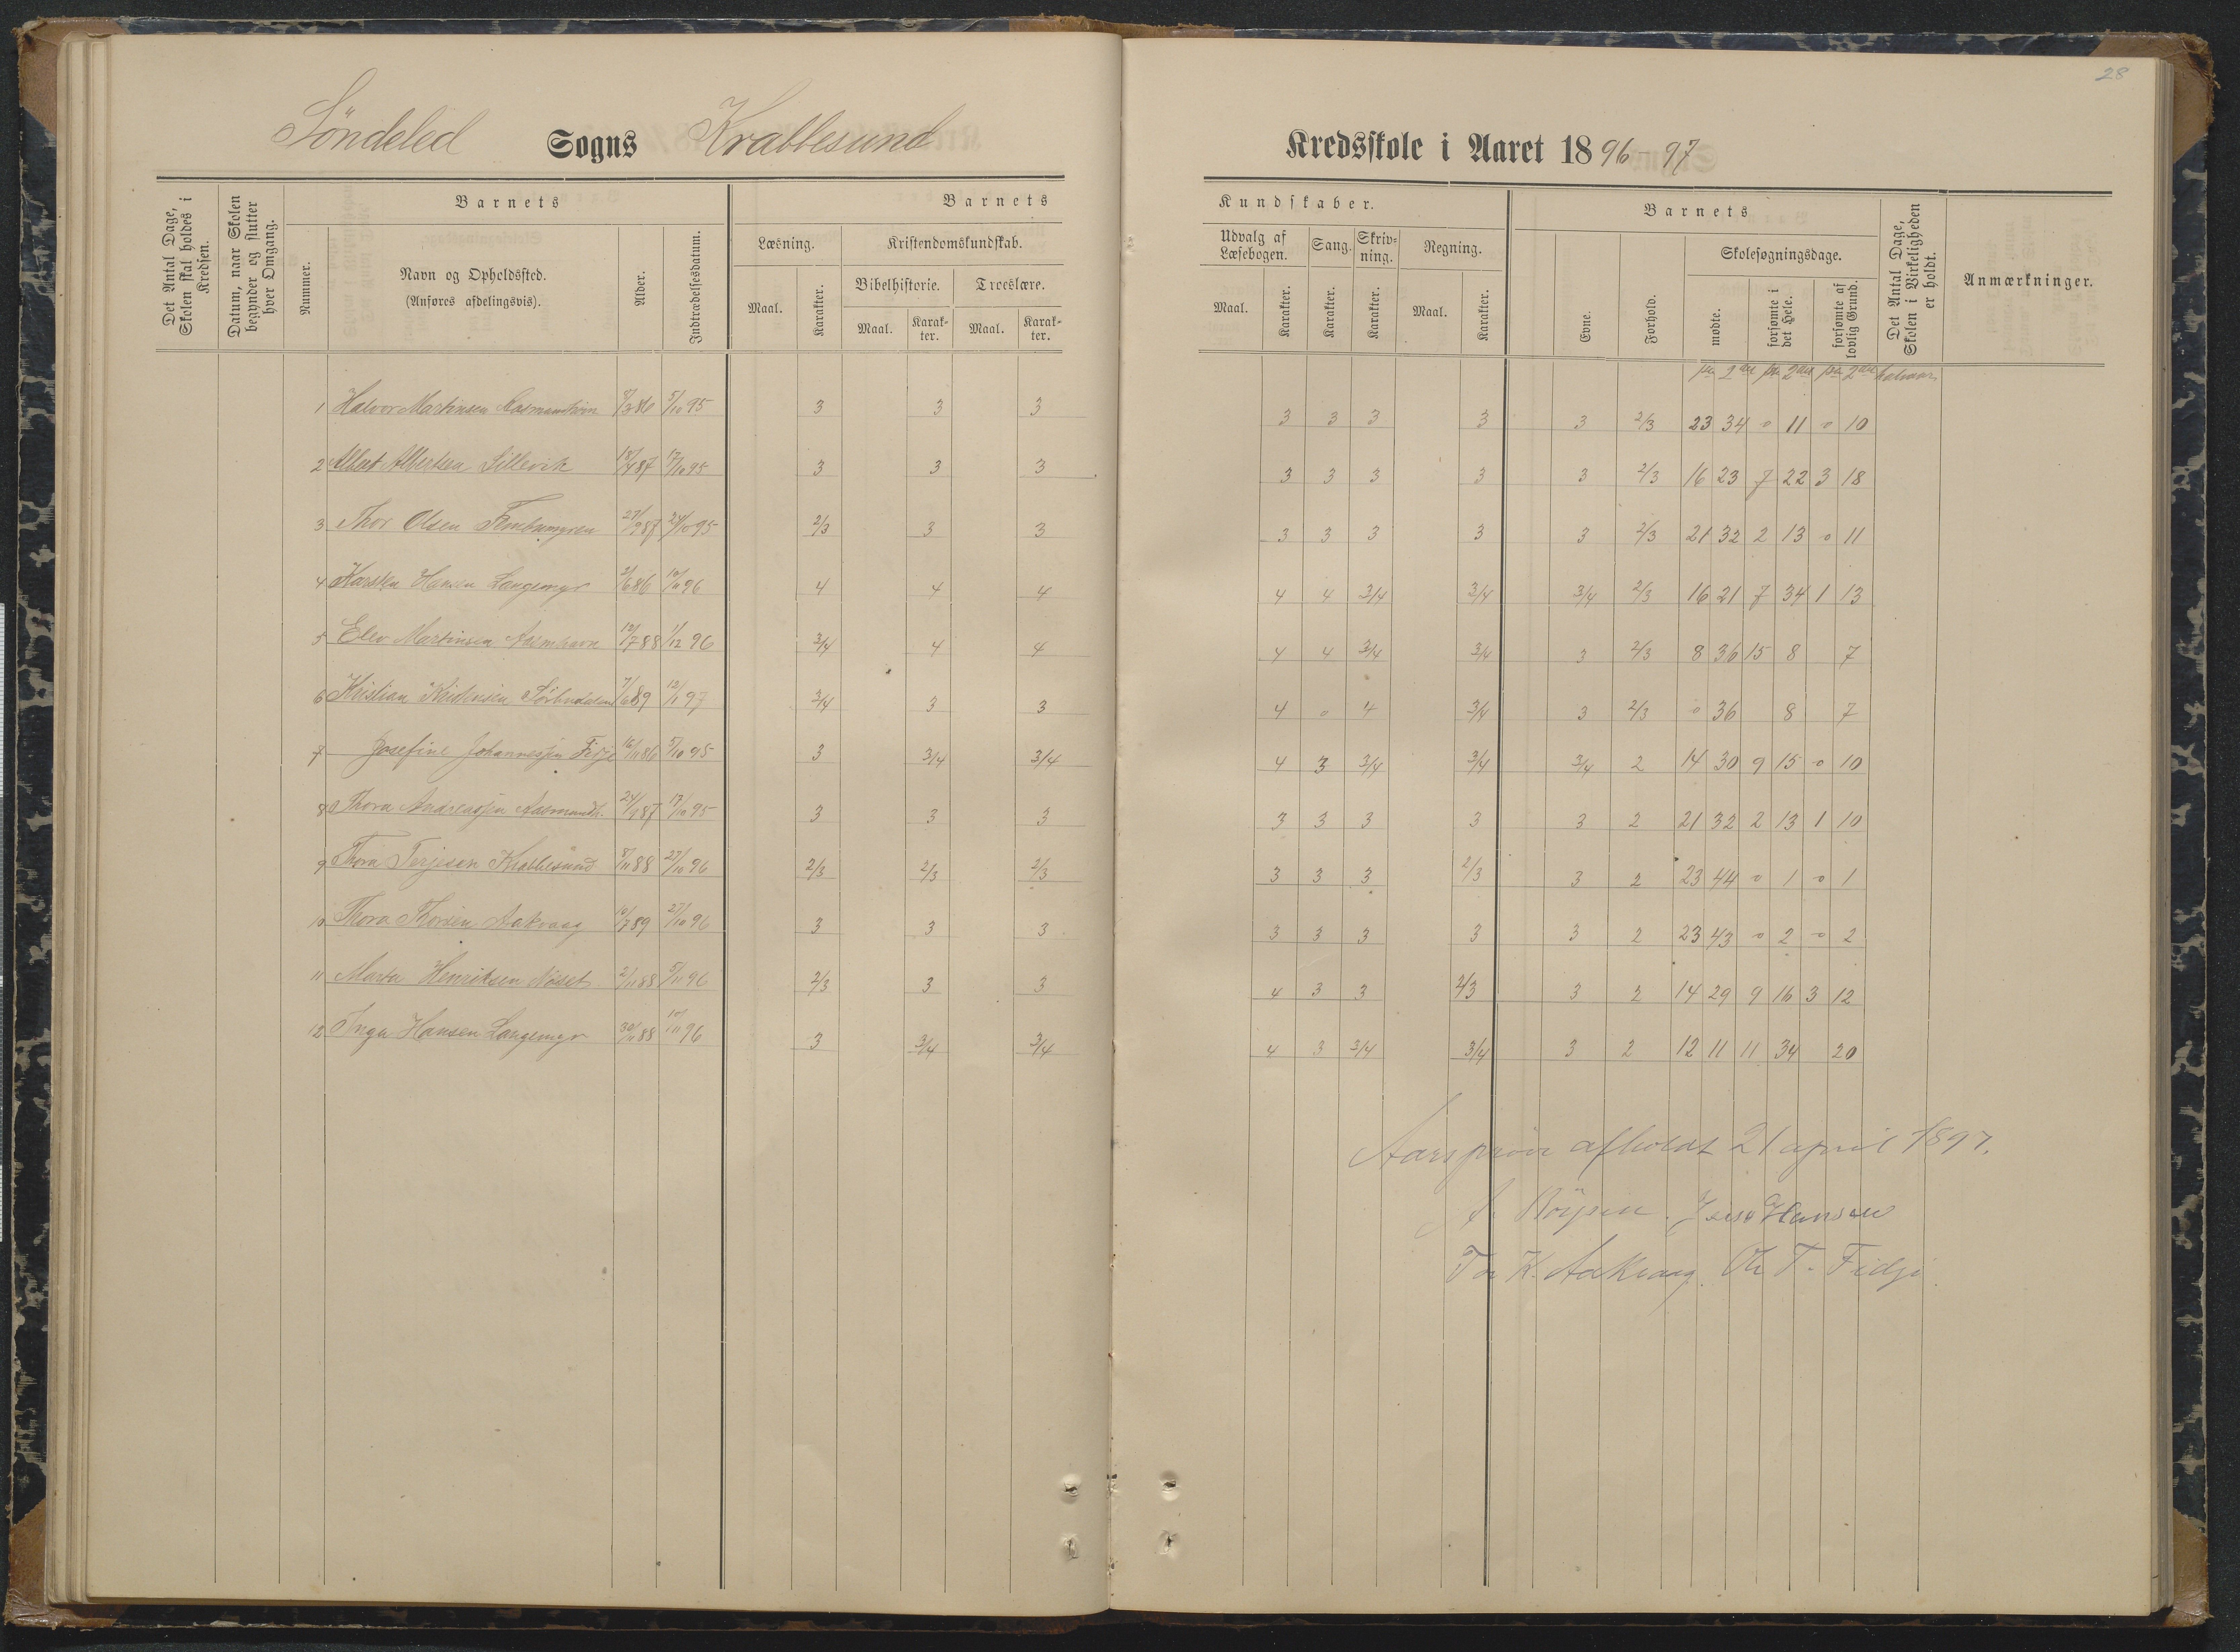 28
Söndeled Sogns Krabbesund Kredsskole i Aaret 1896-97
Det Antal Dage, Skolen skal holdes i Kredsen.
Datum, naar Skolen begynder og slutter hver Omgang.
Barnets
Nummer.
Navn og Opholdssted.
(Anføres afdelingsvis).
Alder.
Indtrædelsesdatum.
Barnets
Læsning.
Maal.
Karakter.
Kristendomskundskab.
Bibelhistorie.
Maal.
Karak-
ter.
Troeslære.
Maal.
Karak-
ter.
Kundskaber.
Udvalg af
Læsebogen.
Maal.
Karakter.
Sang.
Karakter.
Skriv-
ning.
Karakter.
Regning.
Maal.
Karakter.
Barnets
Evne.
Forhold.
Skolesøgningsdage.
mødte.
forsømte i det Hele.
forsømte af lovlig Grund.
Det Antal Dage, Skolen i Virkeligheden er holdt.
Anmærkninger.
1 Halvor Martinsen 5/10 95 3 3 3 3 3 3 3 3 2/3 23 34 0 11 0 10
2 Albert Albertsen Sillevik 18/4 87 17/10 95 3 3 3 3 3 3 3 3 2/3 16 23 7 22 3 18
3 Thor Olsen 27/9 87 24/10 95 2/3 3 3 3 3 3 3 3 2/3 21 32 2 13 0 11
4 Karsten Hansen Langemyr 2/6 86 10/11 96 4 4 4 4 4 3/4 3/4 3/4 2/3 16 21 7 34 1 13
5 Elev Martinsen 12/7 88 1/12 96 3/4 4 4 4 4 3/4 3/4 3 2/3 8 36 15 8 7
6 Kristian Kristensen 7/6 89 12/1 97 3/4 3 3 4 0 4 3/4 3 2/3 0 36 8 7
7 Josefine Johannessen Fidje 16/11 86 5/10 95 3 3/4 3/4 4 3 3/4 3/4 3/4 2 14 30 9 15 0 10
8 Thora Andreassen Aasmundh. 24/9 87 17/10 95 3 3 3 3 3 3 3 3 2 21 32 2 13 1 10
9 Thora Terjesen Krabbesund 8/11 88 27/10 96 2/3 2/3 2/3 3 3 3 2/3 3 2 23 44 0 1 0 1
10 Thora Thorsen Aakvaag 10/7 89 27/10 96 3 3 3 3 3 3 3 3 2 23 43 0 2 0 2
11 Marta Henriksen 2/11 88 5/11 96 2/3 3 3 4 3 3 2/3 3 2 14 29 9 16 3 12
12 Inga Hansen Langemyr 30/11 88 10/11 96 3 3/4 3/4 4 3 3/4 3/4 3 2 12 11 11 34 20
Aarsprøve afholdt 21 april 1897.
Jens Hansen
K. Aakvaag. Ole T. Fidje.